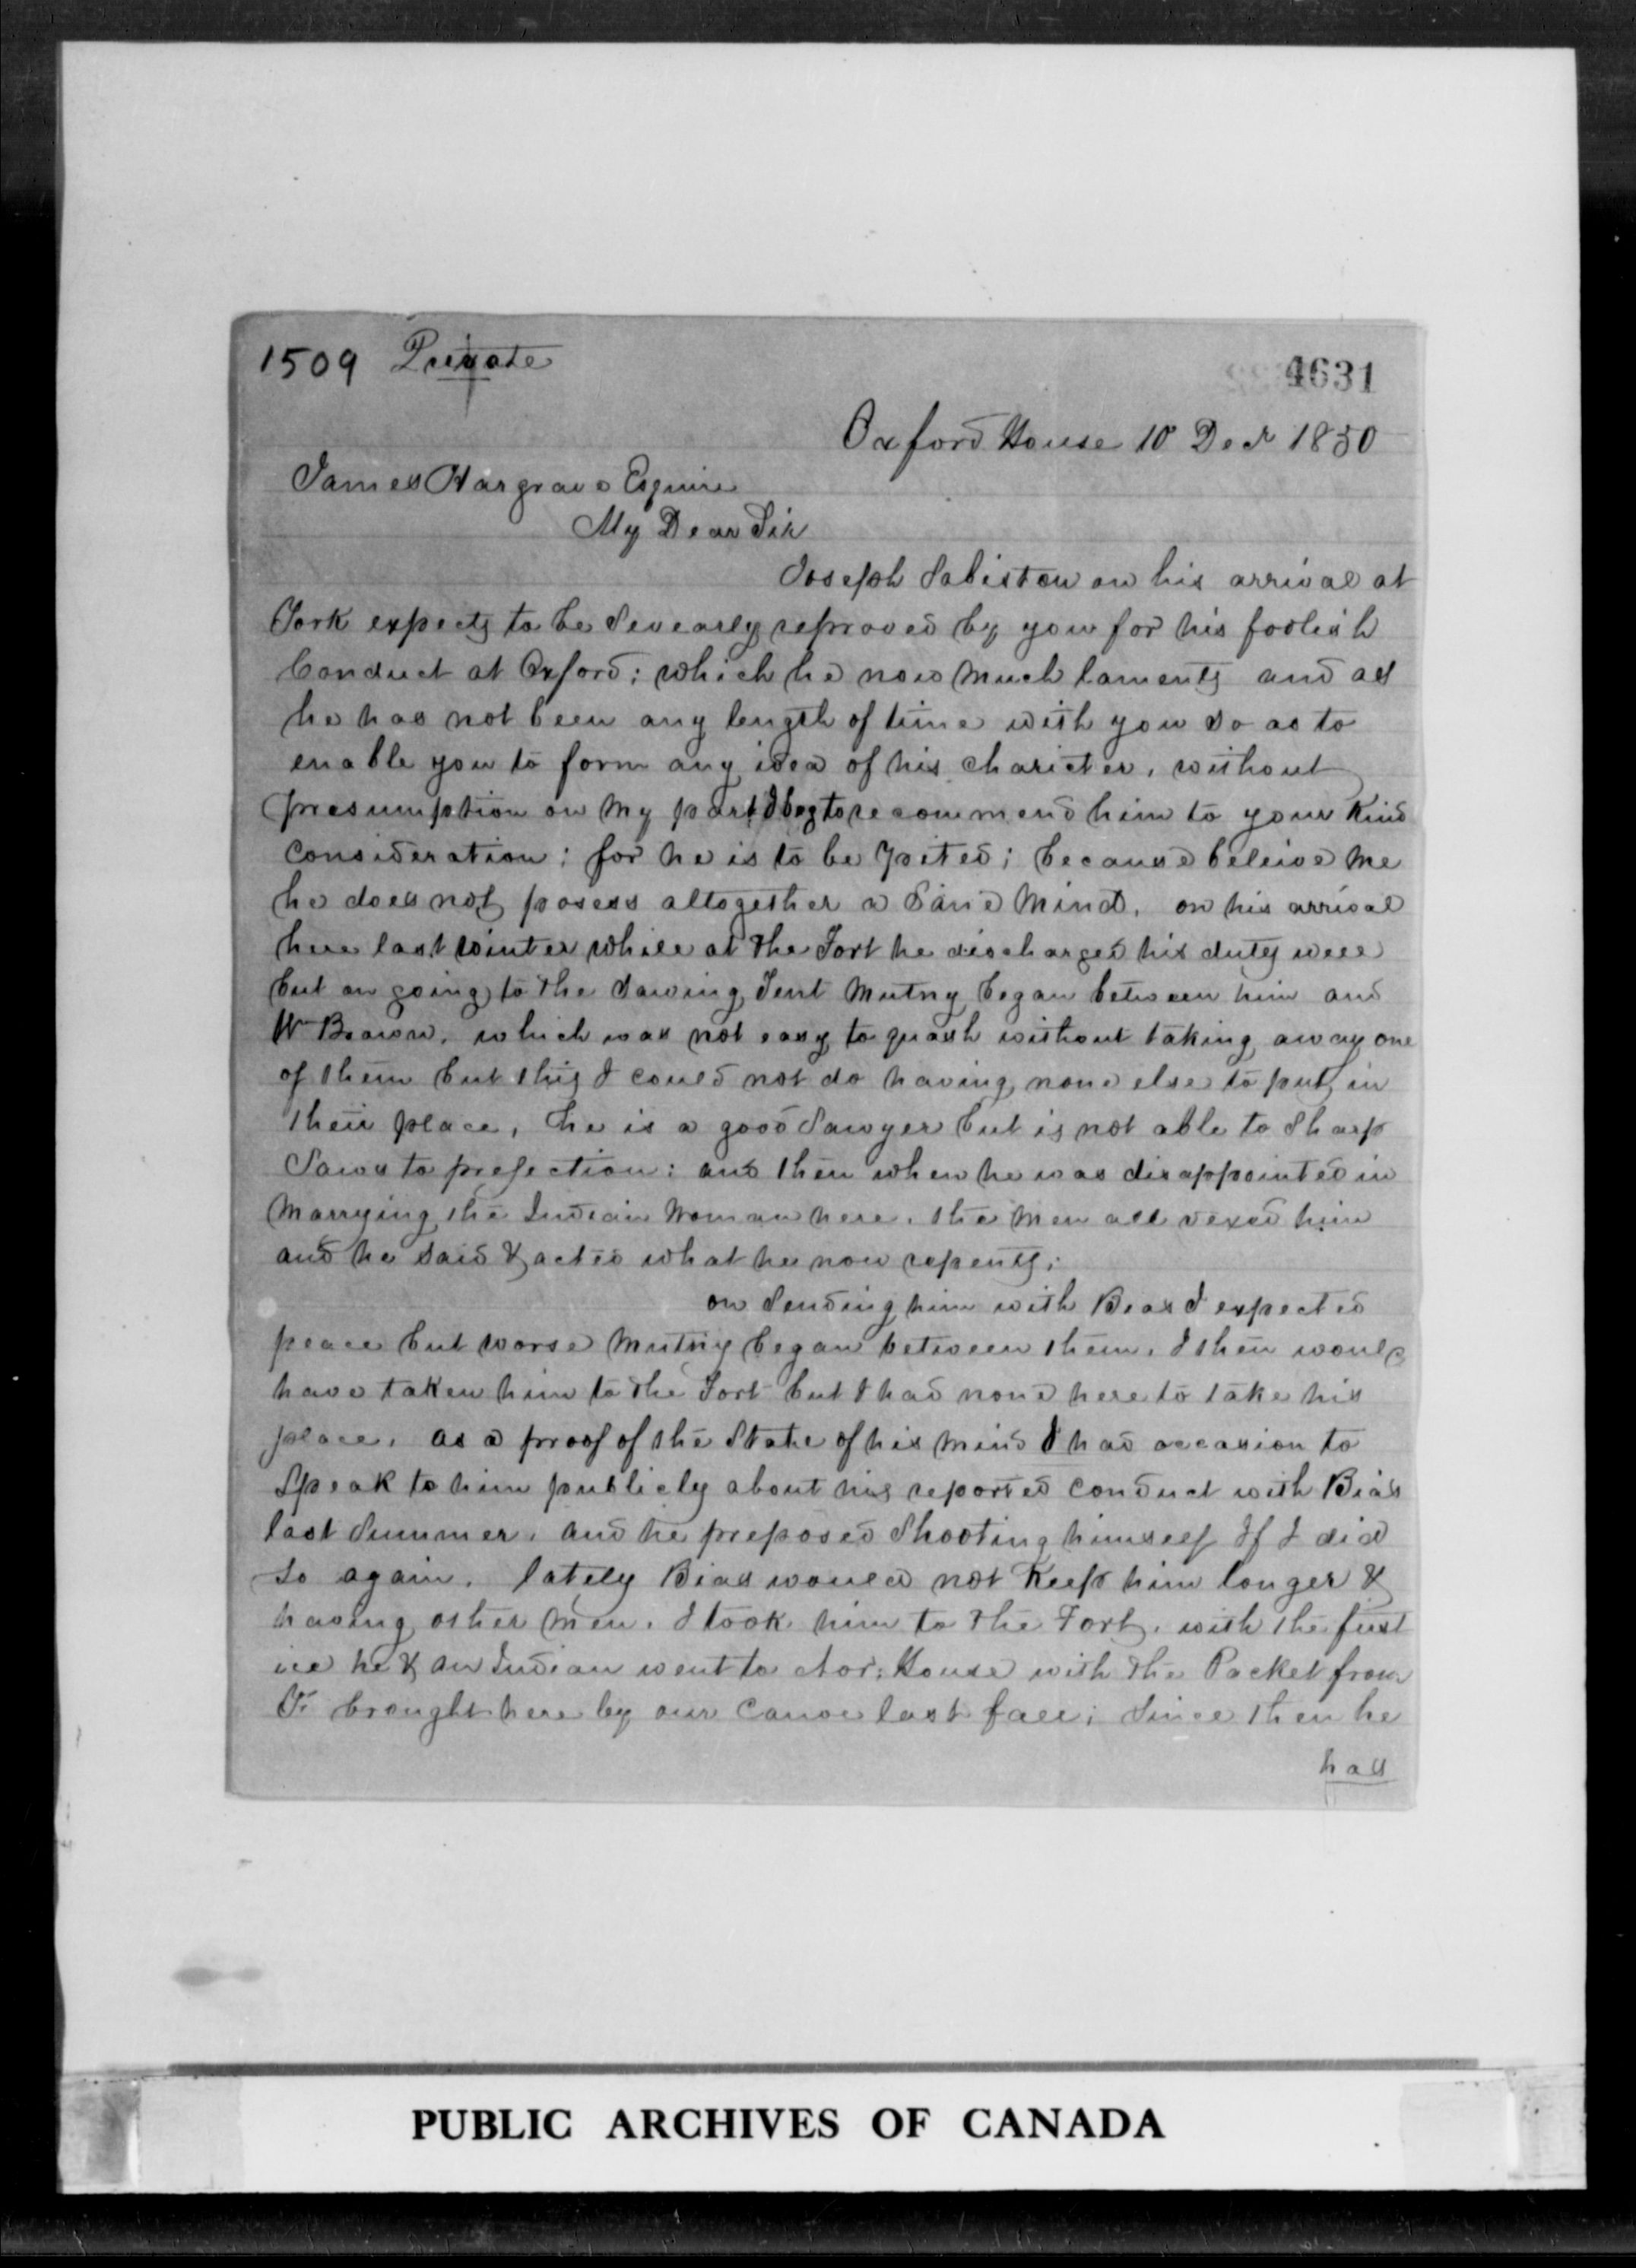 1509 Private
4631
Oxford House 10 Decr 1850
James Hargrave Esquire
My Dear Sir
Joseph Sabiston on his arrival at
York expects to be Sevearly reproved by you for his foolish
Conduct at Oxford; which he now much laments and as
he has not been any length of time with you so as to
enable you to form any idea of his charicter, without
presumption on my part I beg to recommend him to your Kind
Consideration; for he is to be pited; because beleive me
he does not posess altogether a Sane Mind. on his arrival
here last winter while at the Fort he discharged his duty well
but on going to the Sawing Tent Mutny began between him and
Wm Brown, which was not easy to quash without taking away one
of them but this I could not do having none else to put in
their place, he is a good Sawyer but is not able to Sharp
Saws to prefection: and then when he was disappointed in
Marrying the Indian Woman here, the Men all vexed him
and he said & acted what he now repents;
on Sending him with Bias I expected
peace but worse Mutny began between them, I then would
have taken him to the Fort but I had none here to take his
place, as a proof of the State of his mind I had occasion to
Speak to him publicly about his reported Conduct with Bias
last Summer, and he preposed Shooting himself If I did
so again. lately Bias would not Keep him longer &
having other Men, I took him to the Fort, with the first
ice he & an Indian went to Nor: House with the Packet from
brought here by our Canoe last fall; Since then he
has
PUBLIC ARCHIVES OF CANADA